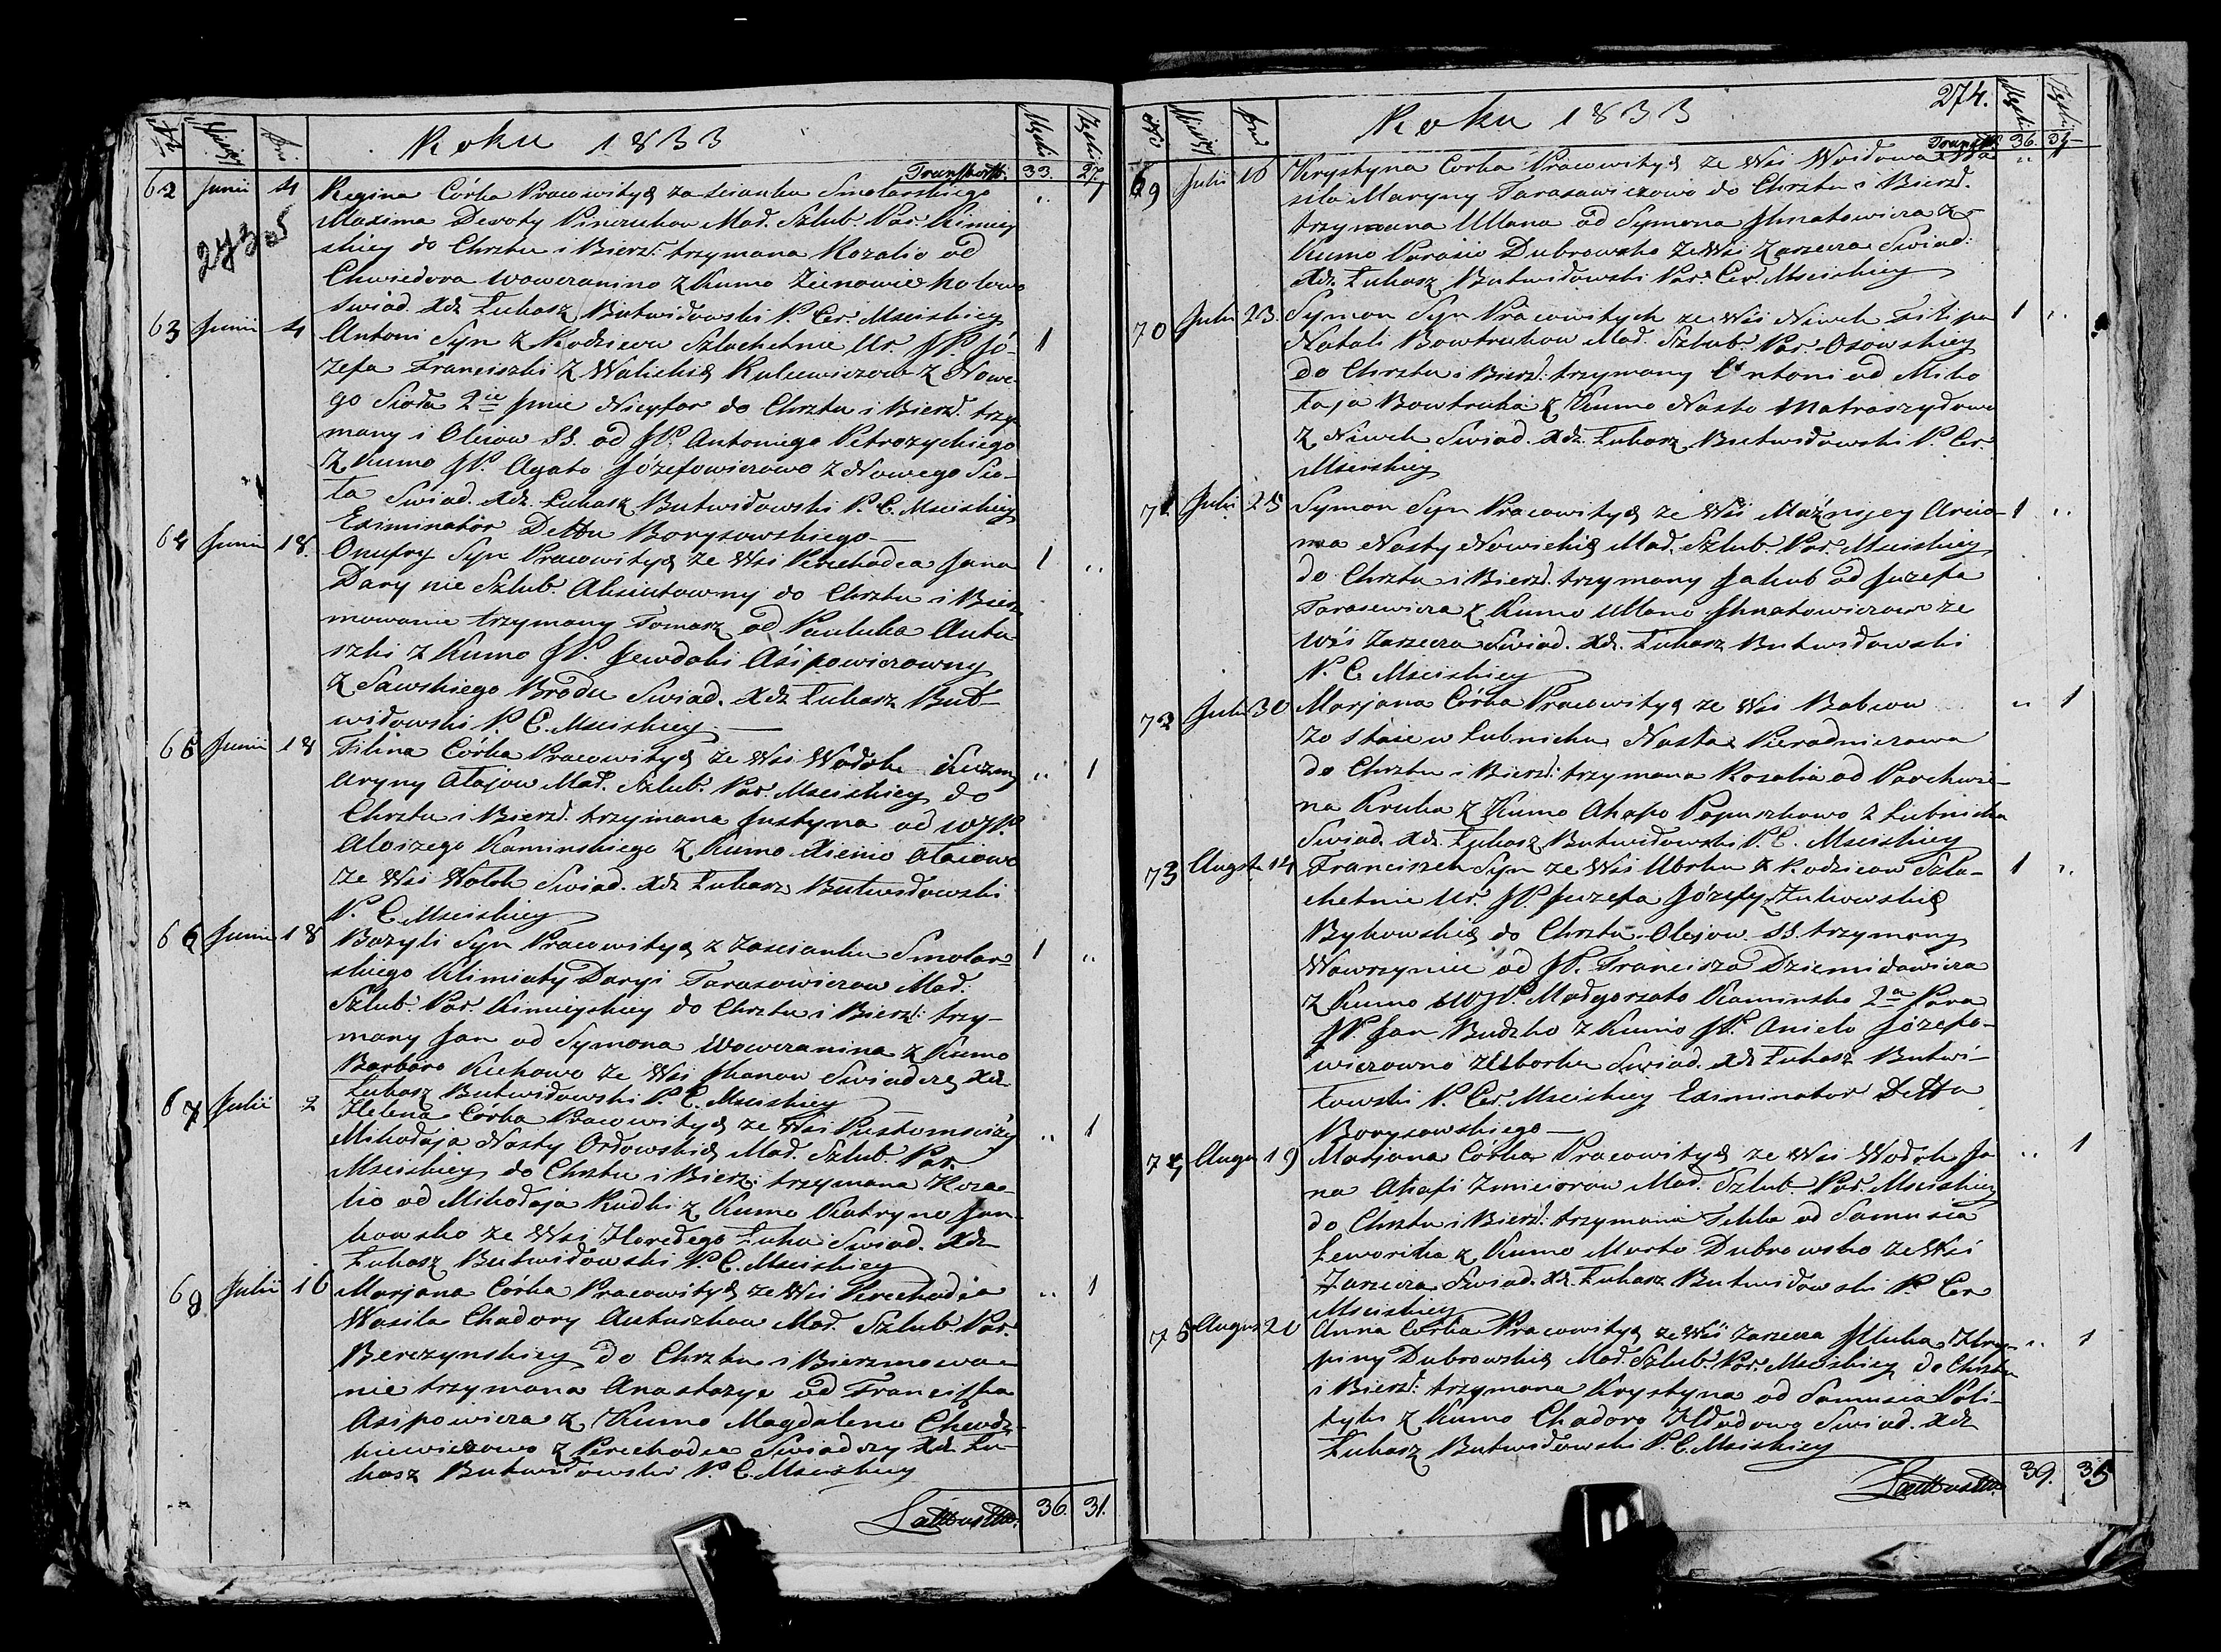 Roku 1833
Męski Żęski
Transport. 33. 27.
62 Junii 4 Regina Córka Pracowitych za scianku Smolarskiego „ 1
Maxima Dewoty Pinczukow Mał. Szlub. Par. Kimiey
skiey do Chrztu i Bierz. trzymana Rozalio od
Chwiedora Woweranino z Kumo Zienowie
Swiad. Xdz Łukasz Butwidowski P. Cer. Msciskiey
63 Junii 4 Antoni Syn z Rodziców Szlachetnie Ur. JP. Jó- 1
zefa Franciszki z Walickich Kulewiczow z Nowe-
go Sioła 2ie Jmie Nicyfor do Chrztu i Bierz. trzy
many i Oleiow SS. od JP. Antoniego Petrozyckiego
z Kumo JP. Agato Józefowiczowo z Nowego Sio-
ła Swiad. Xdz. Łukasz Butwidowski P. C. Msciskiey
Exsiminator Dettu Borysowskiego
64 Junii 18. Onufry Syn Pracowitych ze Wsi Perechodca Jana 1 „
Dary nie Szlub. Aksiutowny do Chrztu i Bierz
mowanie trzymany Tomasz od Pauluka Antu
szki z Kumo JP. Jewdoki Asipowiczowny
z Sawskiego Brodu Swiad. Xdz Łukasz But-
widowski P. C. Msciskiey
65 Junii 18 Filina Córka Pracowitych ze Wsi Wołok Kuzmy „ 1
Aryny Ałajow Mał. Szlub. Par. Msciskiey do
Chrztu i Bierz. trzymana Justyna od WJP.
Aloizego Kaminskiego z Kumo Xienio Ałaiowo
ze Wsi Wołok Swiad. Xdz Łukasz Butwidowski
P. C. Msciskiey
66 Junii 18 Bazyli Syn Pracowitych z Zascianku Smolar- 1 „
skiego Klimiaty Daryi Tarasowiczow Mał.
Szlub. Par. Kimieyskiey do Chrztu i Bierz: trzy-
many Jan od Symona Woweranina z Kumo
Barbaro Kickowo ze Wsi Jkanow Swiadczy Xdz
Łukasz Butwidowski P. C. Msciskiey
67 Julii 2 Helena Córka Pracowitych ze Wsi Pustomsciży „ 1
Mikołaja Nasty Ordowskich Mał. Szlub. Par.
Msciskiey do Chrztu i Bierz: trzymana Roza-
lio od Mikołaja Rudki z Kumo Katryno Jan-
kowsko ze Wsi Horedego Łuhu Swiad. Xdz
Łukasz Butwidowski P. C. Msciskiey
68 Julii 16 Marjana Córka Pracowitych ze Wsi Perechodca „ 1
Wasila Chadory Antuszkow Mał. Szlub. Par.
Berezynskiey do Chrztu i Bierzmowa-
nie trzymana Anastazye od Franciszka
Asipowicza z Kumo Magdalena Chodz-
kiewiczowo z Perechodca Swiadczy Xdz Łu-
kasz Butwidowski P. C. Msciskiey
36. 31.
Roku 1833
274.
Męski Żęski
Transport 36. 31
69 Julii 16 Krystyna Corka Pracowitych ze Wsi Woidowa Wa „ 1
sila Maryny Tarasawiczowo do Chrztu i Bierzd.
trzymana Ullana od Symona Jhnatowicza z
Kumo Parasio Dubrowsko ze Wsi Zarzecza Swiad:
Xdz. Łukasz Butwidowski Par. Cer. Msciskiey
70 Julii 23. Symon Syn Pracowitych ze Wsi Niwek Filipa 1 „
Natali Bowtrukow Mał. Szlub. Par. Osowskiey
do Chrztu i Bierz: trzymany Antoni od Miko
łaja Bowtruka z Kumo Nasto Matraszydowo
z Niwek Swiad. Xdz. Łukasz Butwidowski P. Cer.
Msciskiey
71 Julii 25 Symon Syn Pracowitych ze Wsi Maznyey Arcio- 1 „
ma Nasty Nowickich Mał. Szlub. Par. Msciskiey
do Chrztu i Bierz. trzymany Jakub od Juzefa
Tarasewicza z Kumo Ullano Jhnatowiczowo ze
Wsi Zarzecza Swiad. Xdz. Łukasz Butwidowski
P. C. Msciskiey
72 Julii 30 Marjana Córka Pracowitych ze Wsi Babcow „ 1
zo staie w Łubnicku Nasta Pieradniczowa
do Chrztu i Bierz: trzymana Rozalia od Parchwie-
na Kruka z Kumo Ahapo Papuszkowo z Łubnicka
Swiad. Xdz. Łukasz Butwidowski P. C. Msciskiey
73 Augst 14 Franciszek Syn ze Wsi Uborku z Rodzicow Szla- 1 „
chetnie Ur. JP. Juzefa Józefy z Zukowskich
Bykowskich do Chrztu Olejow SS. trzymany
Wawrzyniec od JP. Franciszka Dziemidowicza
z Kumo WJP. Małgorzato Kaminsko 2a Para
JP. Jan Budzko z Kumo JP. Anielo Józefo-
wiczowno z Uborku Swiad. Xdz Łukasz Butwi-
łowski P. Cer. Msciskiey Exsiminator Dettu
Borysowskiego
74 Augu 19 Marjana Córka Pracowitych ze Wsi Wołok Ja „ 1
na Ahafi Zmiciorow Mał. Szlub. Par. Msciskiey
do Chrztu i Bierz: trzymana Tekla od Samusia
Leworika z Kumo Marto Dubrowsko ze Wsi
Zarzecza Swiad. Xdz. Łukasz Butwidowski P. Cer
Msciskiey
75 Augus 20 Anna Córka Pracowitych ze Wsi Zarzecza Jlluka Hry- „ 1
piny Dubrowskich Mał. Szlub. Par. Msciskiey do Chrztu
i Bierz: trzymana Krystyna od Samusia Poli-
tyki z Kumo Chadoro Hładowo Swiad. Xdz
Łukasz Butwidowski P. C. Msciskiey
39. 35